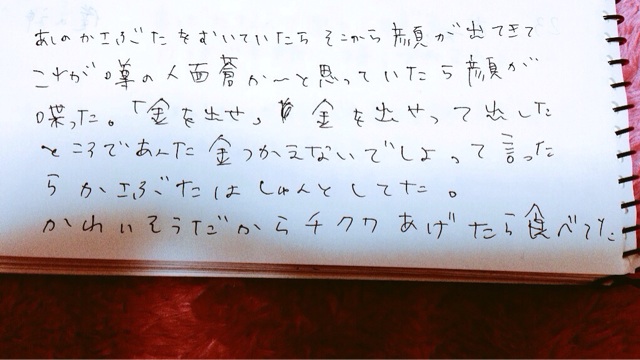 あしのかさぶたをむいていたらそこから顔が出てきて
これが噂の人面蒼か〜と思っていたら顔が
喋った。「金を出せ」金を出せって出した
ところであんた金つかえないでしょって言った
らかさぶたはしゅんとしてた。
かわいそうだからチクワあげたら食べてた